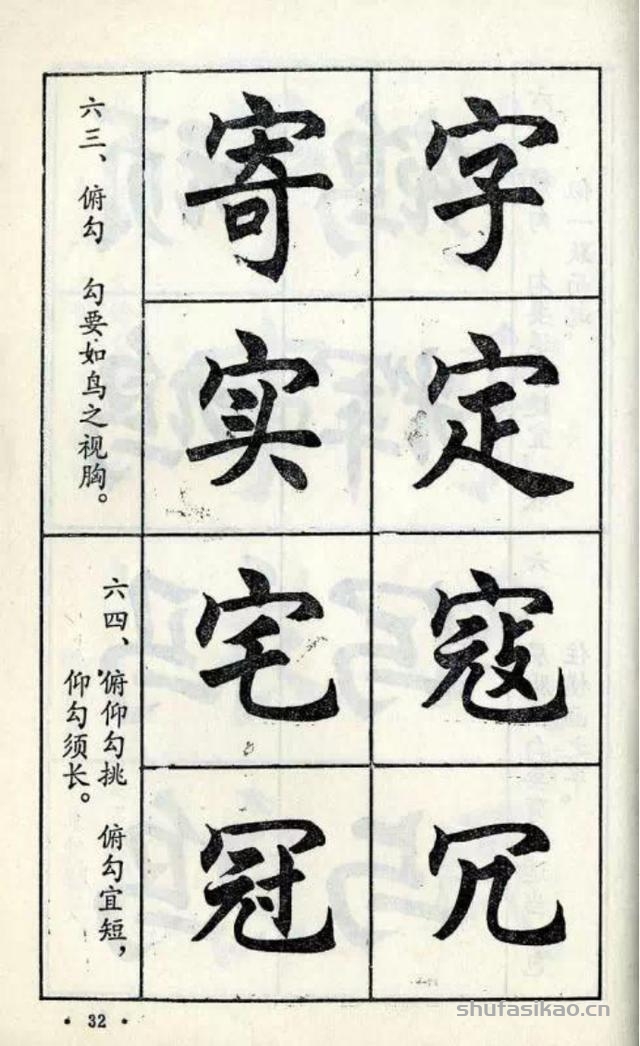 字
定
寄
实
六三、俯勾 勾要如鸟之视胸。
寇
冗
宅
冠
六四、俯仰勾挑 俯勾宜短，
仰勾须长。
· 32 ·
shufasikao.cn